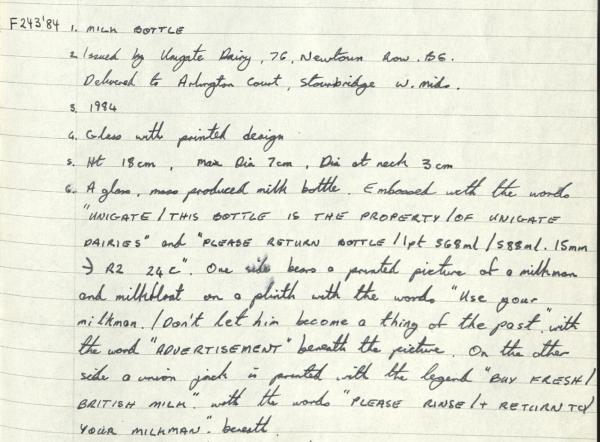 F243'84 1. MILK BOTTLE
2. Issued by Unigate Dairy, 76, Newtown Row. B6.
Delivered to Arlington Court, Stourbridge W. Mids.
3. 1984
4. Glass with printed design
5. Ht 18cm, Max Dia 7cm, Dia at neck 3cm
6. A glass, mass produced milk bottle. Embossed with the words
"UNIGATE / THIS BOTTLE IS THE PROPERTY / OF UNIGATE
DAIRIES" and "PLEASE RETURN BOTTLE / 1pt 568ml / 588ml. 15mm
→ R2 24C". One side bears a printed picture of a milkman
and milkfloat on a plinth with the words "Use your
milkman. / Don't let him become a thing of the past." with
the word "ADVERTISEMENT" beneath the picture. On the other
side a union jack is printed with the legend "BUY FRESH /
BRITISH MILK" with the words "PLEASE RINSE / + RETURN TO /
YOUR MILKMAN". beneath